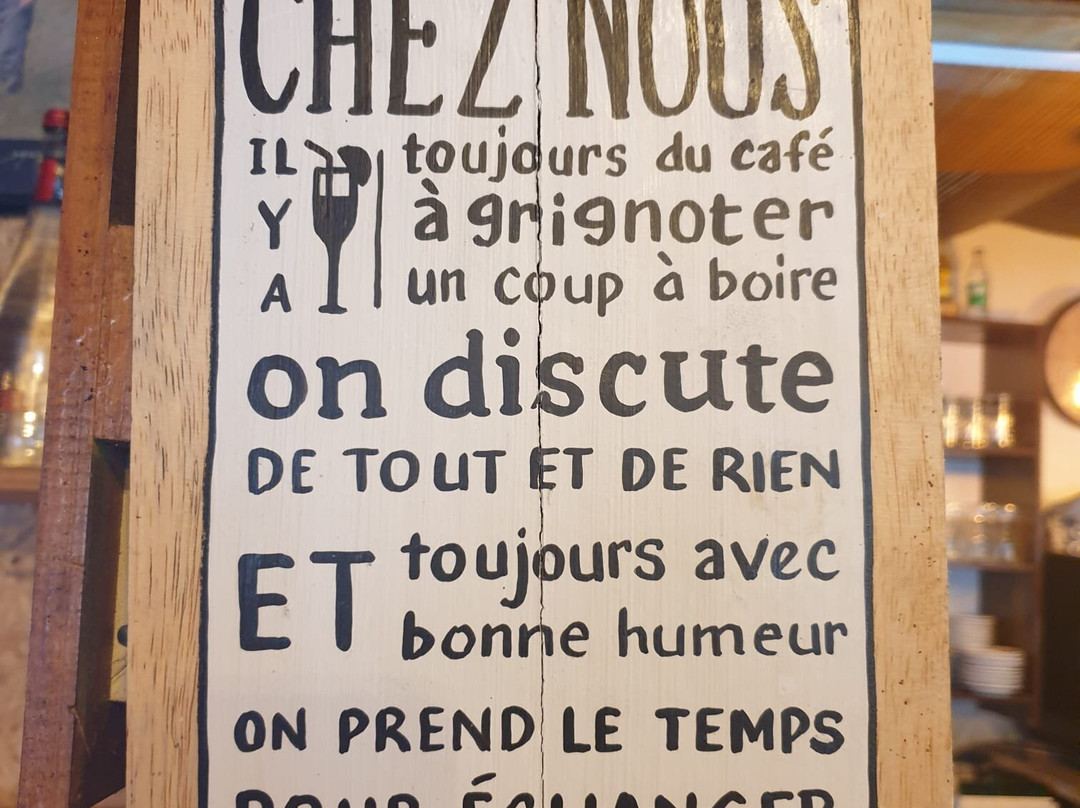 CHEZ NOUS
IL Y A
toujours du café
à grignoter
un coup à boire
on discute
DE TOUT ET DE RIEN
ET toujours avec
bonne humeur
ON PREND LE TEMPS
POUR ÉCHANGER